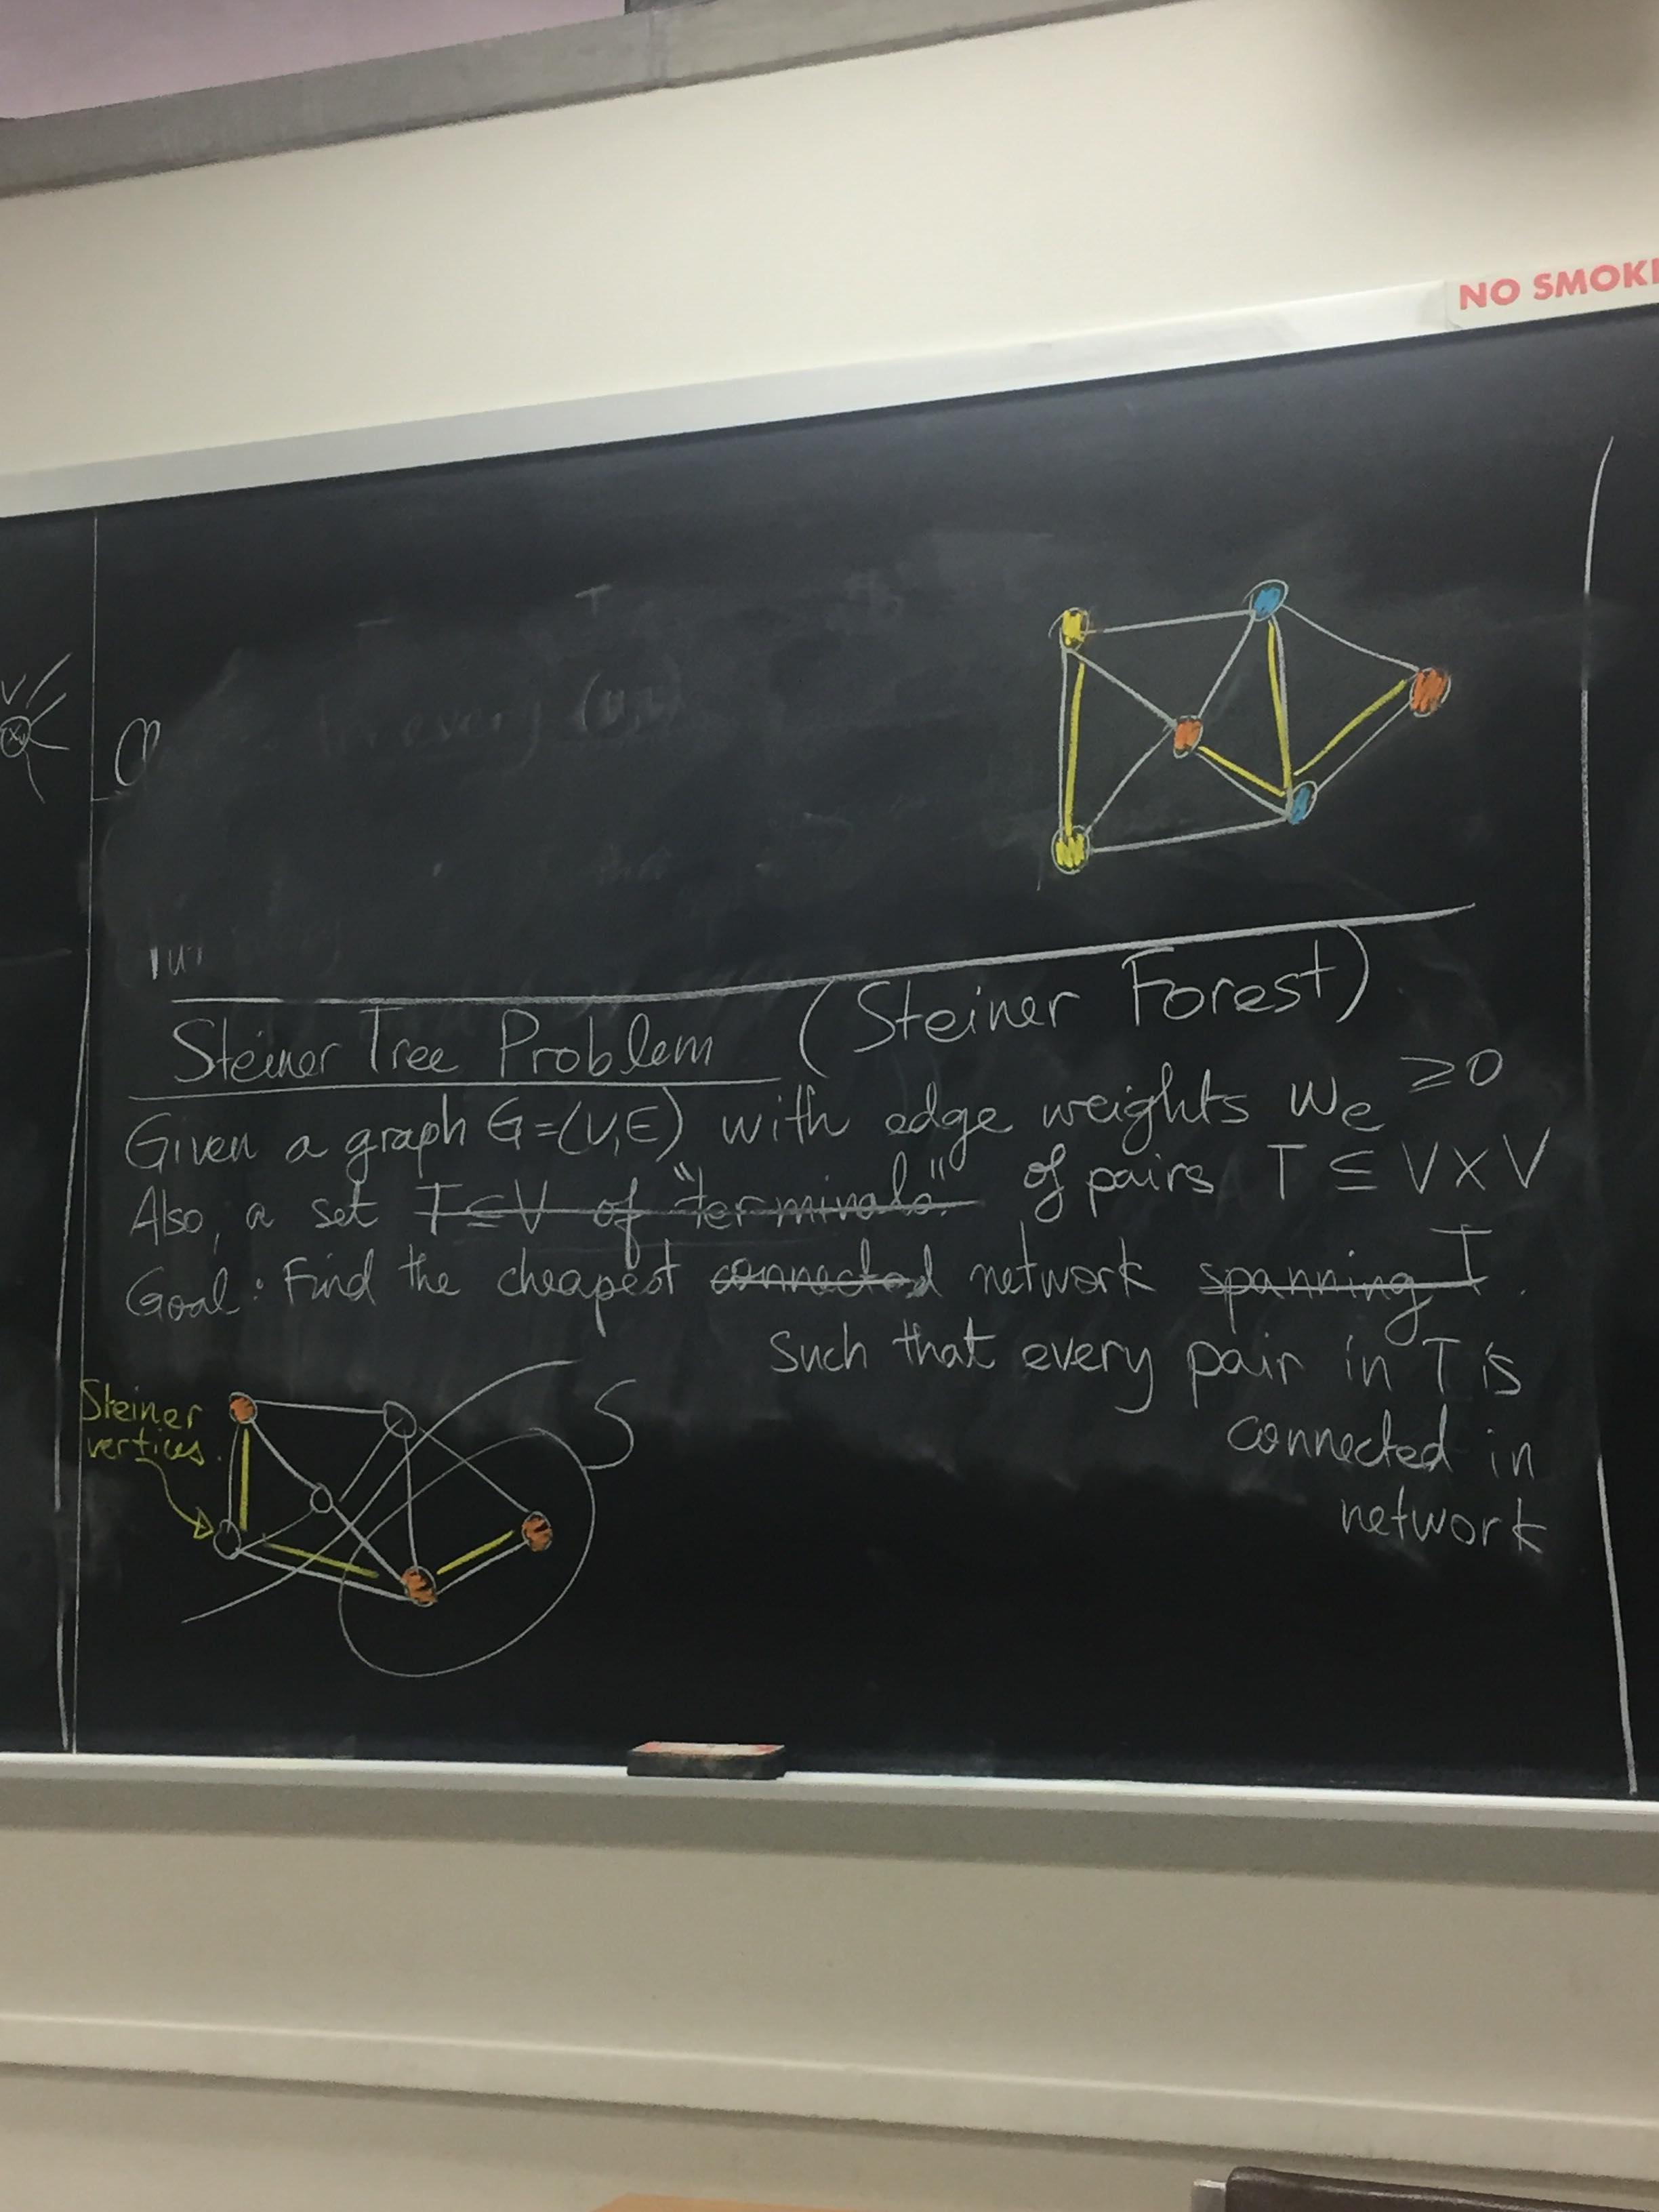 NO SMOKI
V
for every (u,v)
Steiner Tree Problem (Steiner Forest)
Given a graph G=(V,E) with edge weights We ≥0
Also, a set T⊆V of "terminals." of pairs T ⊆ V×V
Goal: Find the cheapest connected network spanning T.
Such that every pair in T is
connected in
network
Steiner
vertices.
S